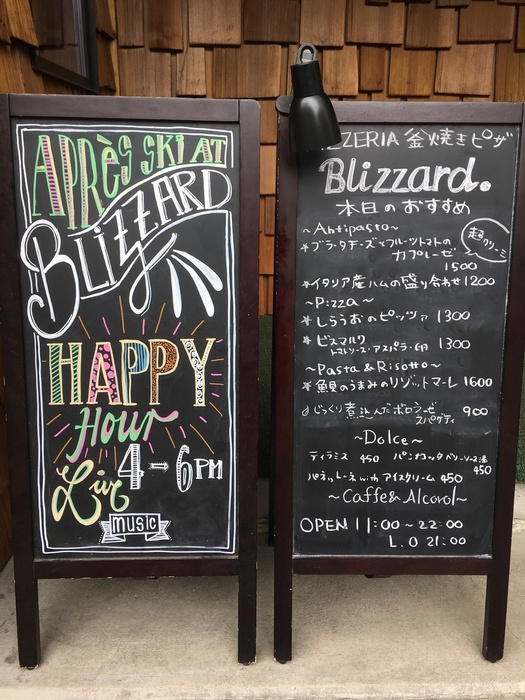 APRÈS SKI AT
BLIZZARD
HAPPY
Hour
4-6PM
Live
MUSIC
ZZERIA 釜焼きピザ
Blizzard.
本日のおすすめ
~Antipasto~
超クリーミー
*ブラータチーズとフルーツトマトの
カプレーゼ 1500
*イタリア産ハムの盛り合わせ 1200
~Pizza~
*しらうおのピッツァ 1300
*ビスマルク 1300
トマトソース・アスパラ・卵
~Pasta & Risotto~
*魚貝のうまみのリゾットマーレ 1600
じっくり煮込んだボロネーゼ 900
スパゲティ
~Dolce~
ティラミス 450 パンナコッタ ベリーソース添 450
パネットーネ with アイスクリーム 450
~Caffe& Alcorol~
OPEN 11:00~22:00
L.O 21:00